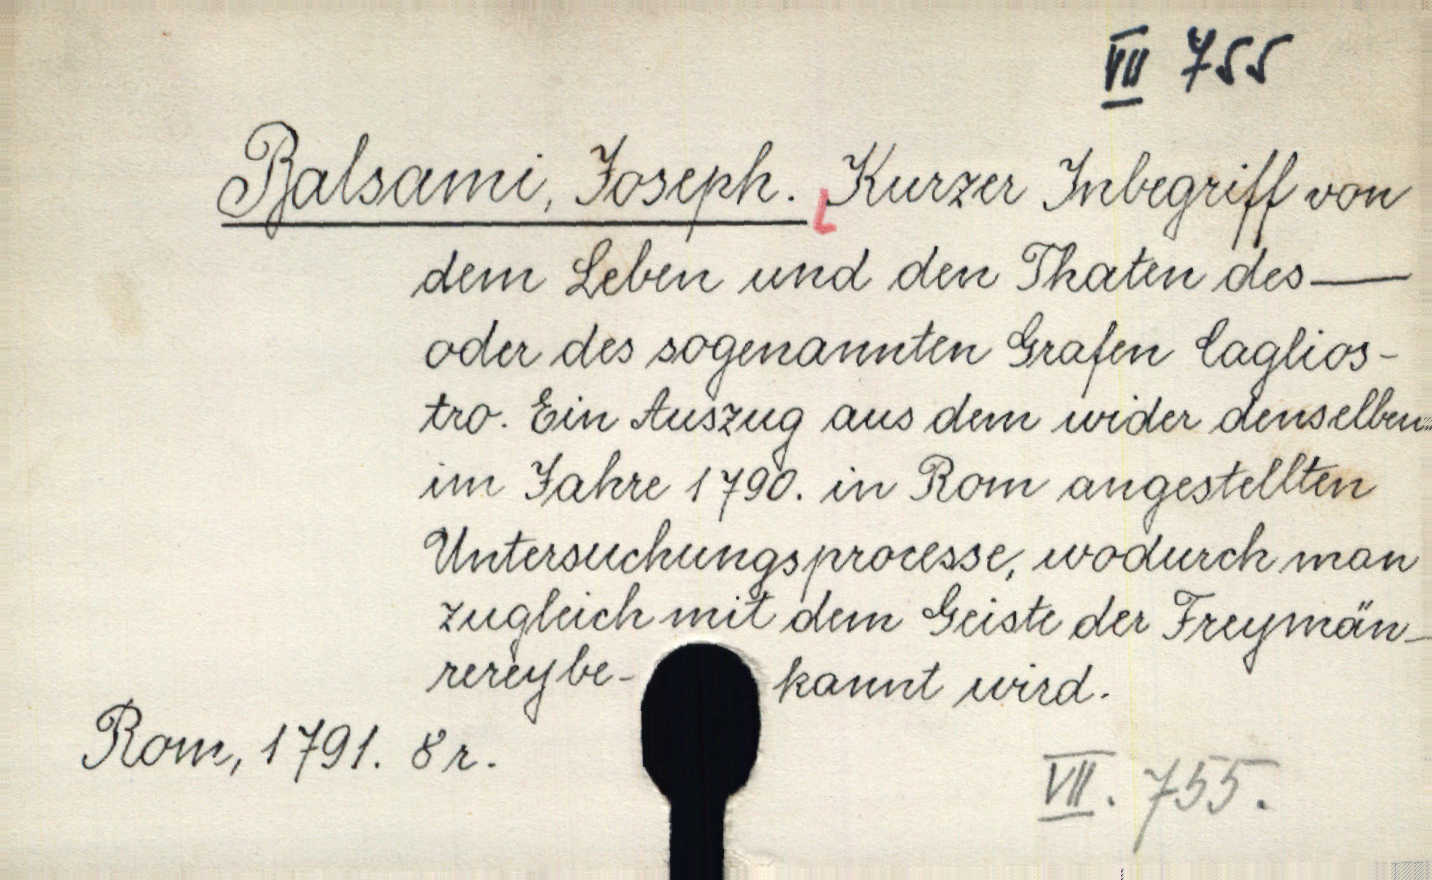 VII 755
Balsami, Joseph. Kurzer Inbegriff von
dem Leben und den Thaten des —
oder des sogenannten Grafen Caglios-
tro. Ein Auszug aus dem wider denselben
im Jahre 1790. in Rom angestellten
Untersuchungsprocesse, wodurch man
zugleich mit dem Geiste der Freymän-
rerey be- kannt wird.
Rom, 1791. 8r.
VII. 755.